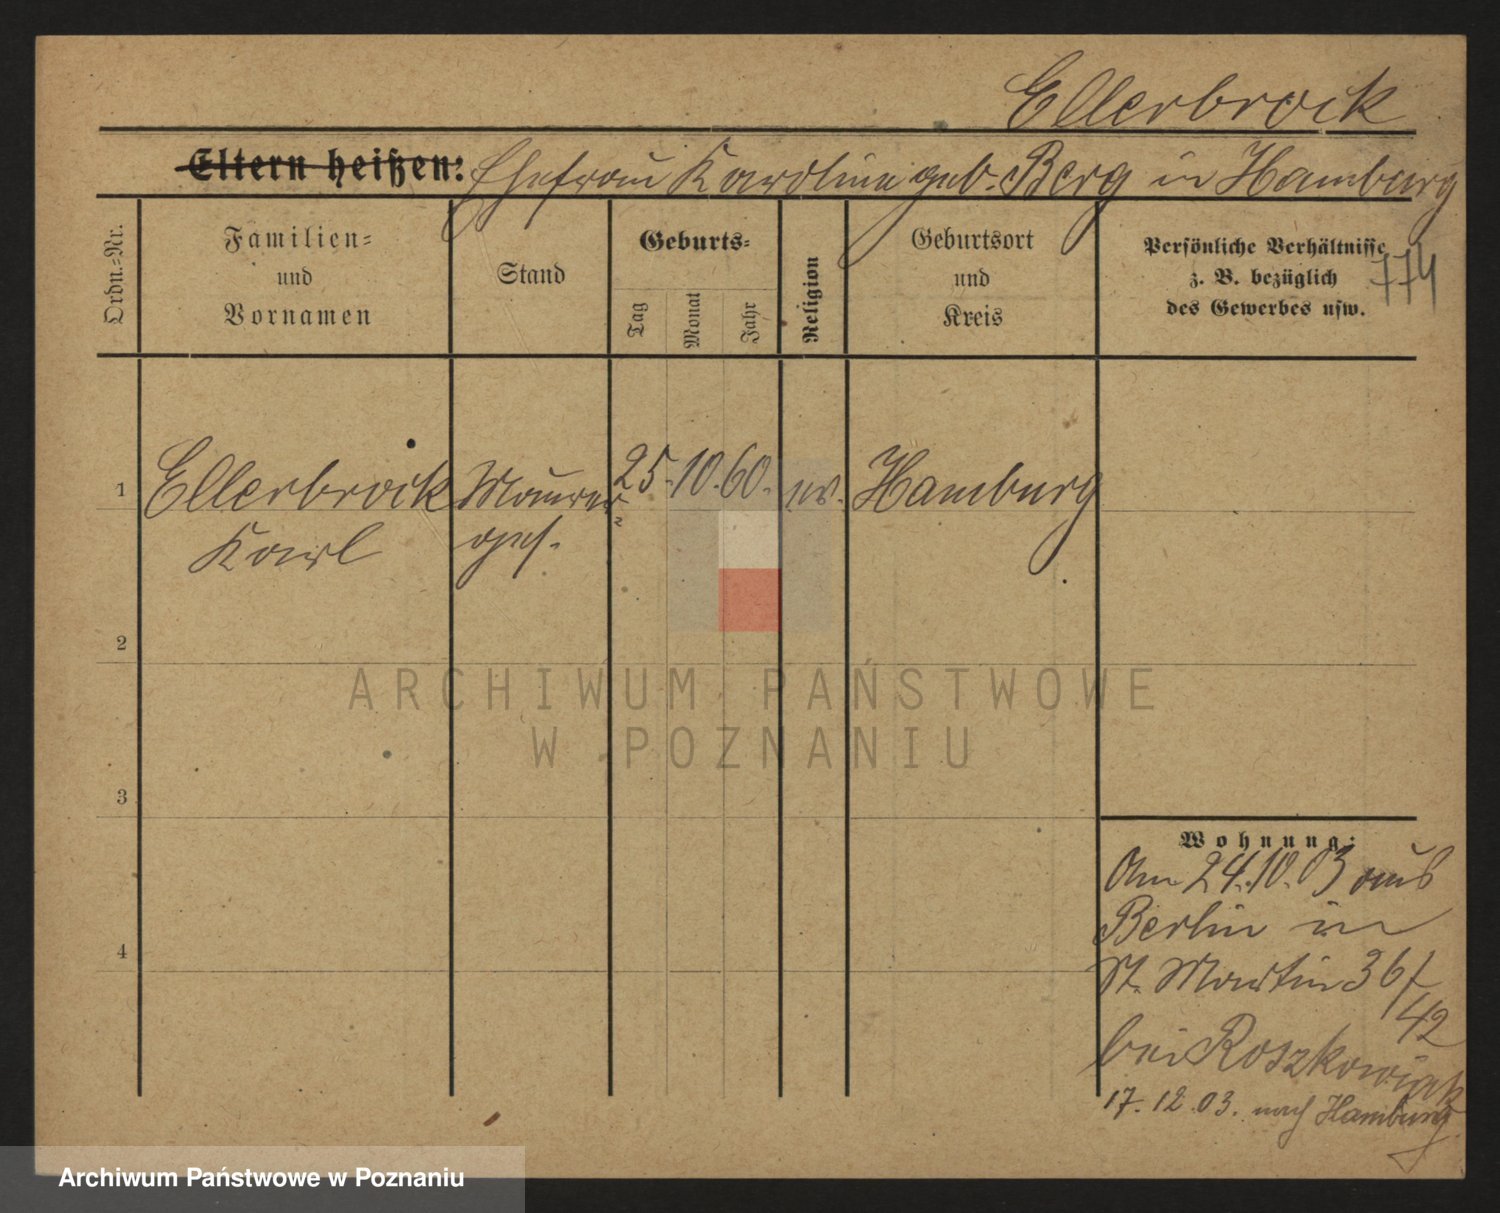 Ellerbrock
Eltern heißen: Ehefrau Karoline geb. Berg in Hamburg
Ordn.-Nr.
Familien-
und
Vornamen
Stand
Geburts-
Tag
Monat
Jahr
Religion
Geburtsort
und
Kreis
Persönliche Verhältnisse
z. B. bezüglich
des Gewerbes usw.
774
1 Ellerbrock Maurer 25. 10. 60. ev. Hamburg
Karl ges.
2
3
4
Wohnung:
Am 24.10.03 aus
Berlin in
St. Martin 36/
42
bei Roszkowiak
17.12.03. nach Hamburg
ARCHIWUM PAŃSTWOWE
W POZNANIU
Archiwum Państwowe w Poznaniu